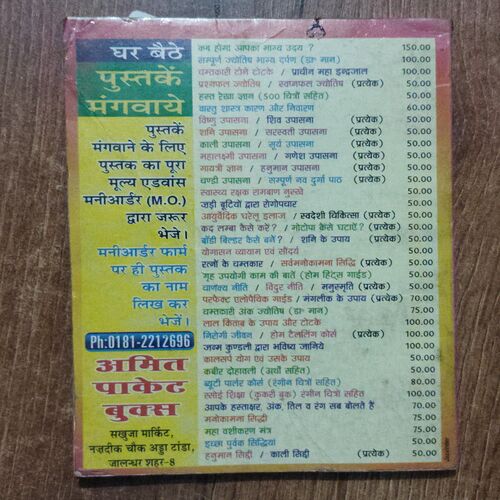 घर बैठे
पुस्तकें
मंगवाये
पुस्तकें
मंगवाने के लिए
पुस्तक का पूरा
मूल्य एडवांस
मनीआर्डर (M.O.)
द्वारा जरूर
भेजे।
मनीआर्डर फार्म
पर ही पुस्तक
का नाम
लिख कर
भेजें।
Ph:0181-2212696
अमित
पाकेट
बुक्स
सखुजा मार्किट,
नज़दीक चौक अड्डा टांडा,
जालन्धर शहर-8
कब होगा आपका भाग्य उदय ? 150.00
सम्पूर्ण ज्योतिष भाग्य दर्पण 100.00
चमत्कारी टोने टोटके / प्राचीन महा इन्द्रजाल 100.00
प्रश्नफल ज्योतिष / स्वप्नफल ज्योतिष (प्रत्येक) 50.00
हस्त रेखा ज्ञान (500 चित्रों सहित) 50.00
वास्तु शास्त्र कारण और निवारण 60.00
विष्णु उपासना / शिव उपासना (प्रत्येक) 50.00
शनि उपासना / सरस्वती उपासना (प्रत्येक) 50.00
काली उपासना / सूर्य उपासना (प्रत्येक) 50.00
महालक्ष्मी उपासना / गणेश उपासना (प्रत्येक) 50.00
गायत्री ज्ञान / हनुमान उपासना (प्रत्येक) 50.00
चण्डी उपासना / सम्पूर्ण नव दुर्गा पाठ (प्रत्येक) 50.00
स्वास्थ्य रक्षक रामबाण नुस्खे 50.00
जड़ी बूटियों द्वारा रोगोपचार 50.00
आयुर्वेदिक घरेलू इलाज / स्वदेशी चिकित्सा (प्रत्येक) 50.00
कद लम्बा कैसे करें? / मोटापा कैसे घटाएँ? (प्रत्येक) 50.00
बॉडी बिल्डर कैसे बनें? / शनि के उपाय (प्रत्येक) 50.00
योगासन व्यायाम एवं सौंदर्य 50.00
रत्नों के चमत्कार / सर्वमनोकामना सिद्धि (प्रत्येक) 50.00
गृह उपयोगी काम की बातें (होम हिंट्स गाईड) 50.00
चाणक्य नीति / विदुर नीति / मनुस्मृति (प्रत्येक) 50.00
परफेक्ट एलोपैथिक गाईड / मंगलीक के उपाय (प्रत्येक) 70.00
चमत्कारी अंक ज्योतिष 75.00
लाल किताब के उपाय और टोटके 100.00
निरोगी जीवन / होम टेलरिंग कोर्स (प्रत्येक) 100.00
जन्म कुण्डली द्वारा भविष्य जानिये 100.00
कालसर्प योग एवं उसके उपाय 50.00
कबीर दोहावली (अर्थो सहित) 50.00
ब्यूटी पार्लर कोर्स (रंगीन चित्रों सहित) 80.00
रसोई शिक्षा (कुकरी बुक) रंगीन चित्रों सहित 100.00
आपके हस्ताक्षर, अंक, तिल व रंग सब बोलते हैं 70.00
मनोकामना सिद्धी 75.00
महा वशीकरण मंत्र 75.00
इच्छा पूर्वक सिद्धियां 50.00
हनुमान सिद्दी / काली सिद्दी (प्रत्येक) 50.00